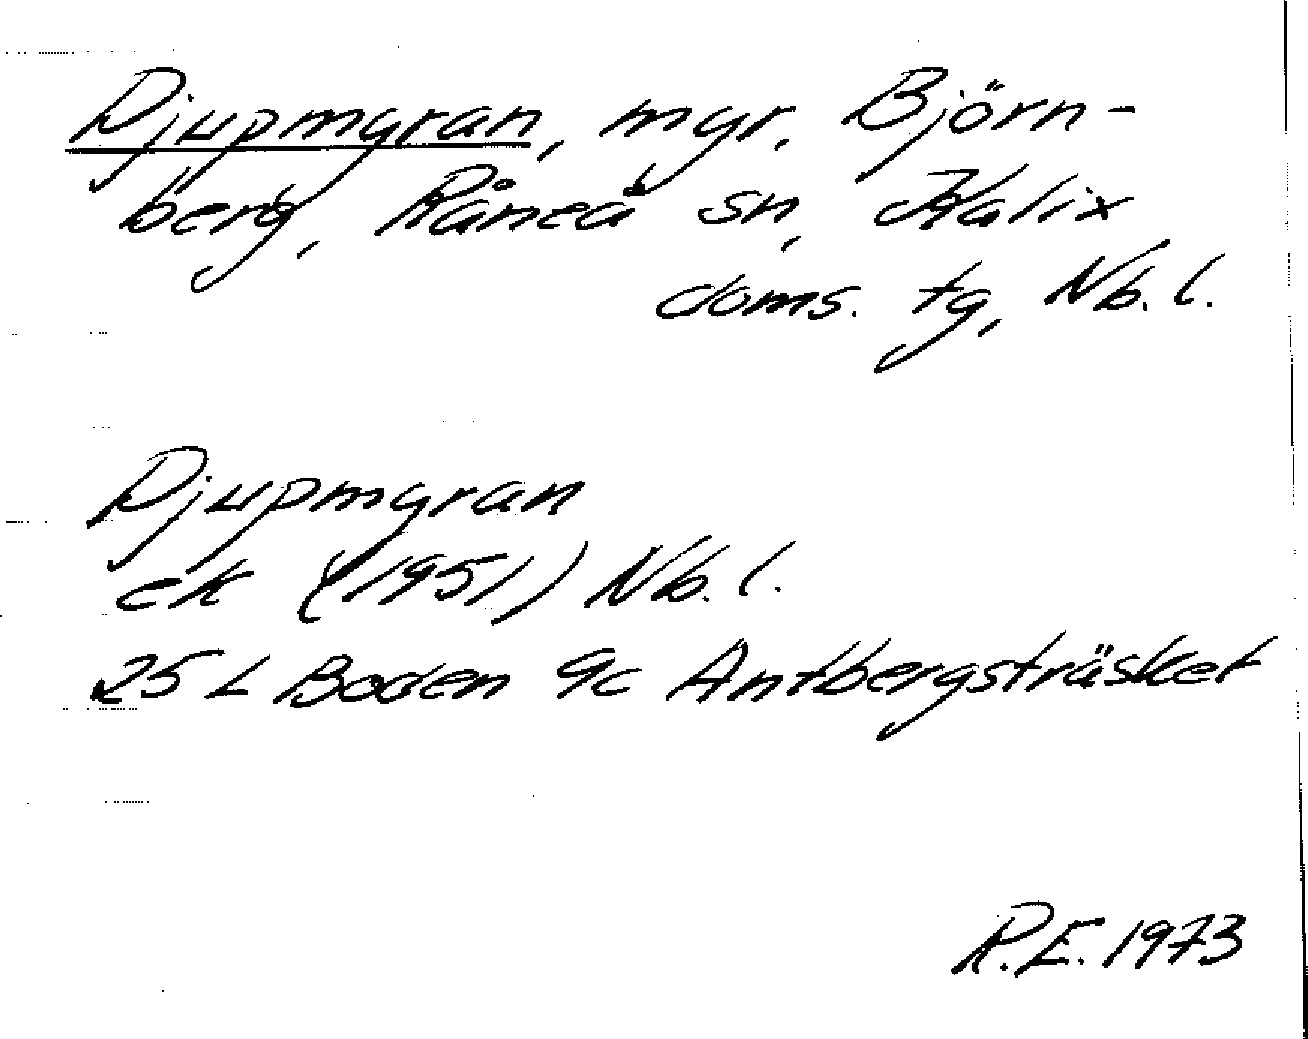 Djupmyran, myr, Björn-
berg, Råneå sn, Kalix
doms. tg, Nb. l.
Djupmyran
ek (1951) Nb. l.
25 L Boden 9c Antbergsträsket
R.E. 1973